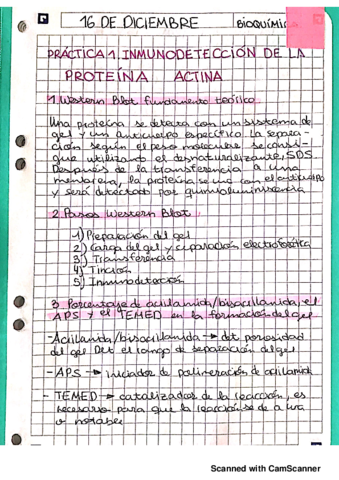 16 DE DICIEMBRE
BIOQUÍMICA
PRÁCTICA 1. INMUNODETECCIÓN DE LA
PROTEÍNA ACTINA
1. Western Blot fundamento teórico
Una proteína se detecta con un sistema de
gel y un anticuerpo específico. La separa-
ción según el peso molecular se consi-
gue utilizando el desnaturalizante, SDS.
Después de la transferencia a una
membrana, la proteína se une con el anticuerpo
y será detectado por quimioluminiscencia
2. Pasos Western Blot
1) Preparación del gel
2) Carga del gel y separación electroforética
3) Transferencia
4) Tinción
5) Inmunodetección
3. Porcentaje de acrilamida/bisacrilamida, el
APS y el TEMED en la formación del gel
-Acrilamida/bisacrilamida → det. porosidad
del gel. Det. el rango de separación del gel
- APS → iniciador de polimeración de acrilamida
- TEMED → catalizador de la reacción, es
necesario para que la reacción se dé a una
Scanned with CamScanner